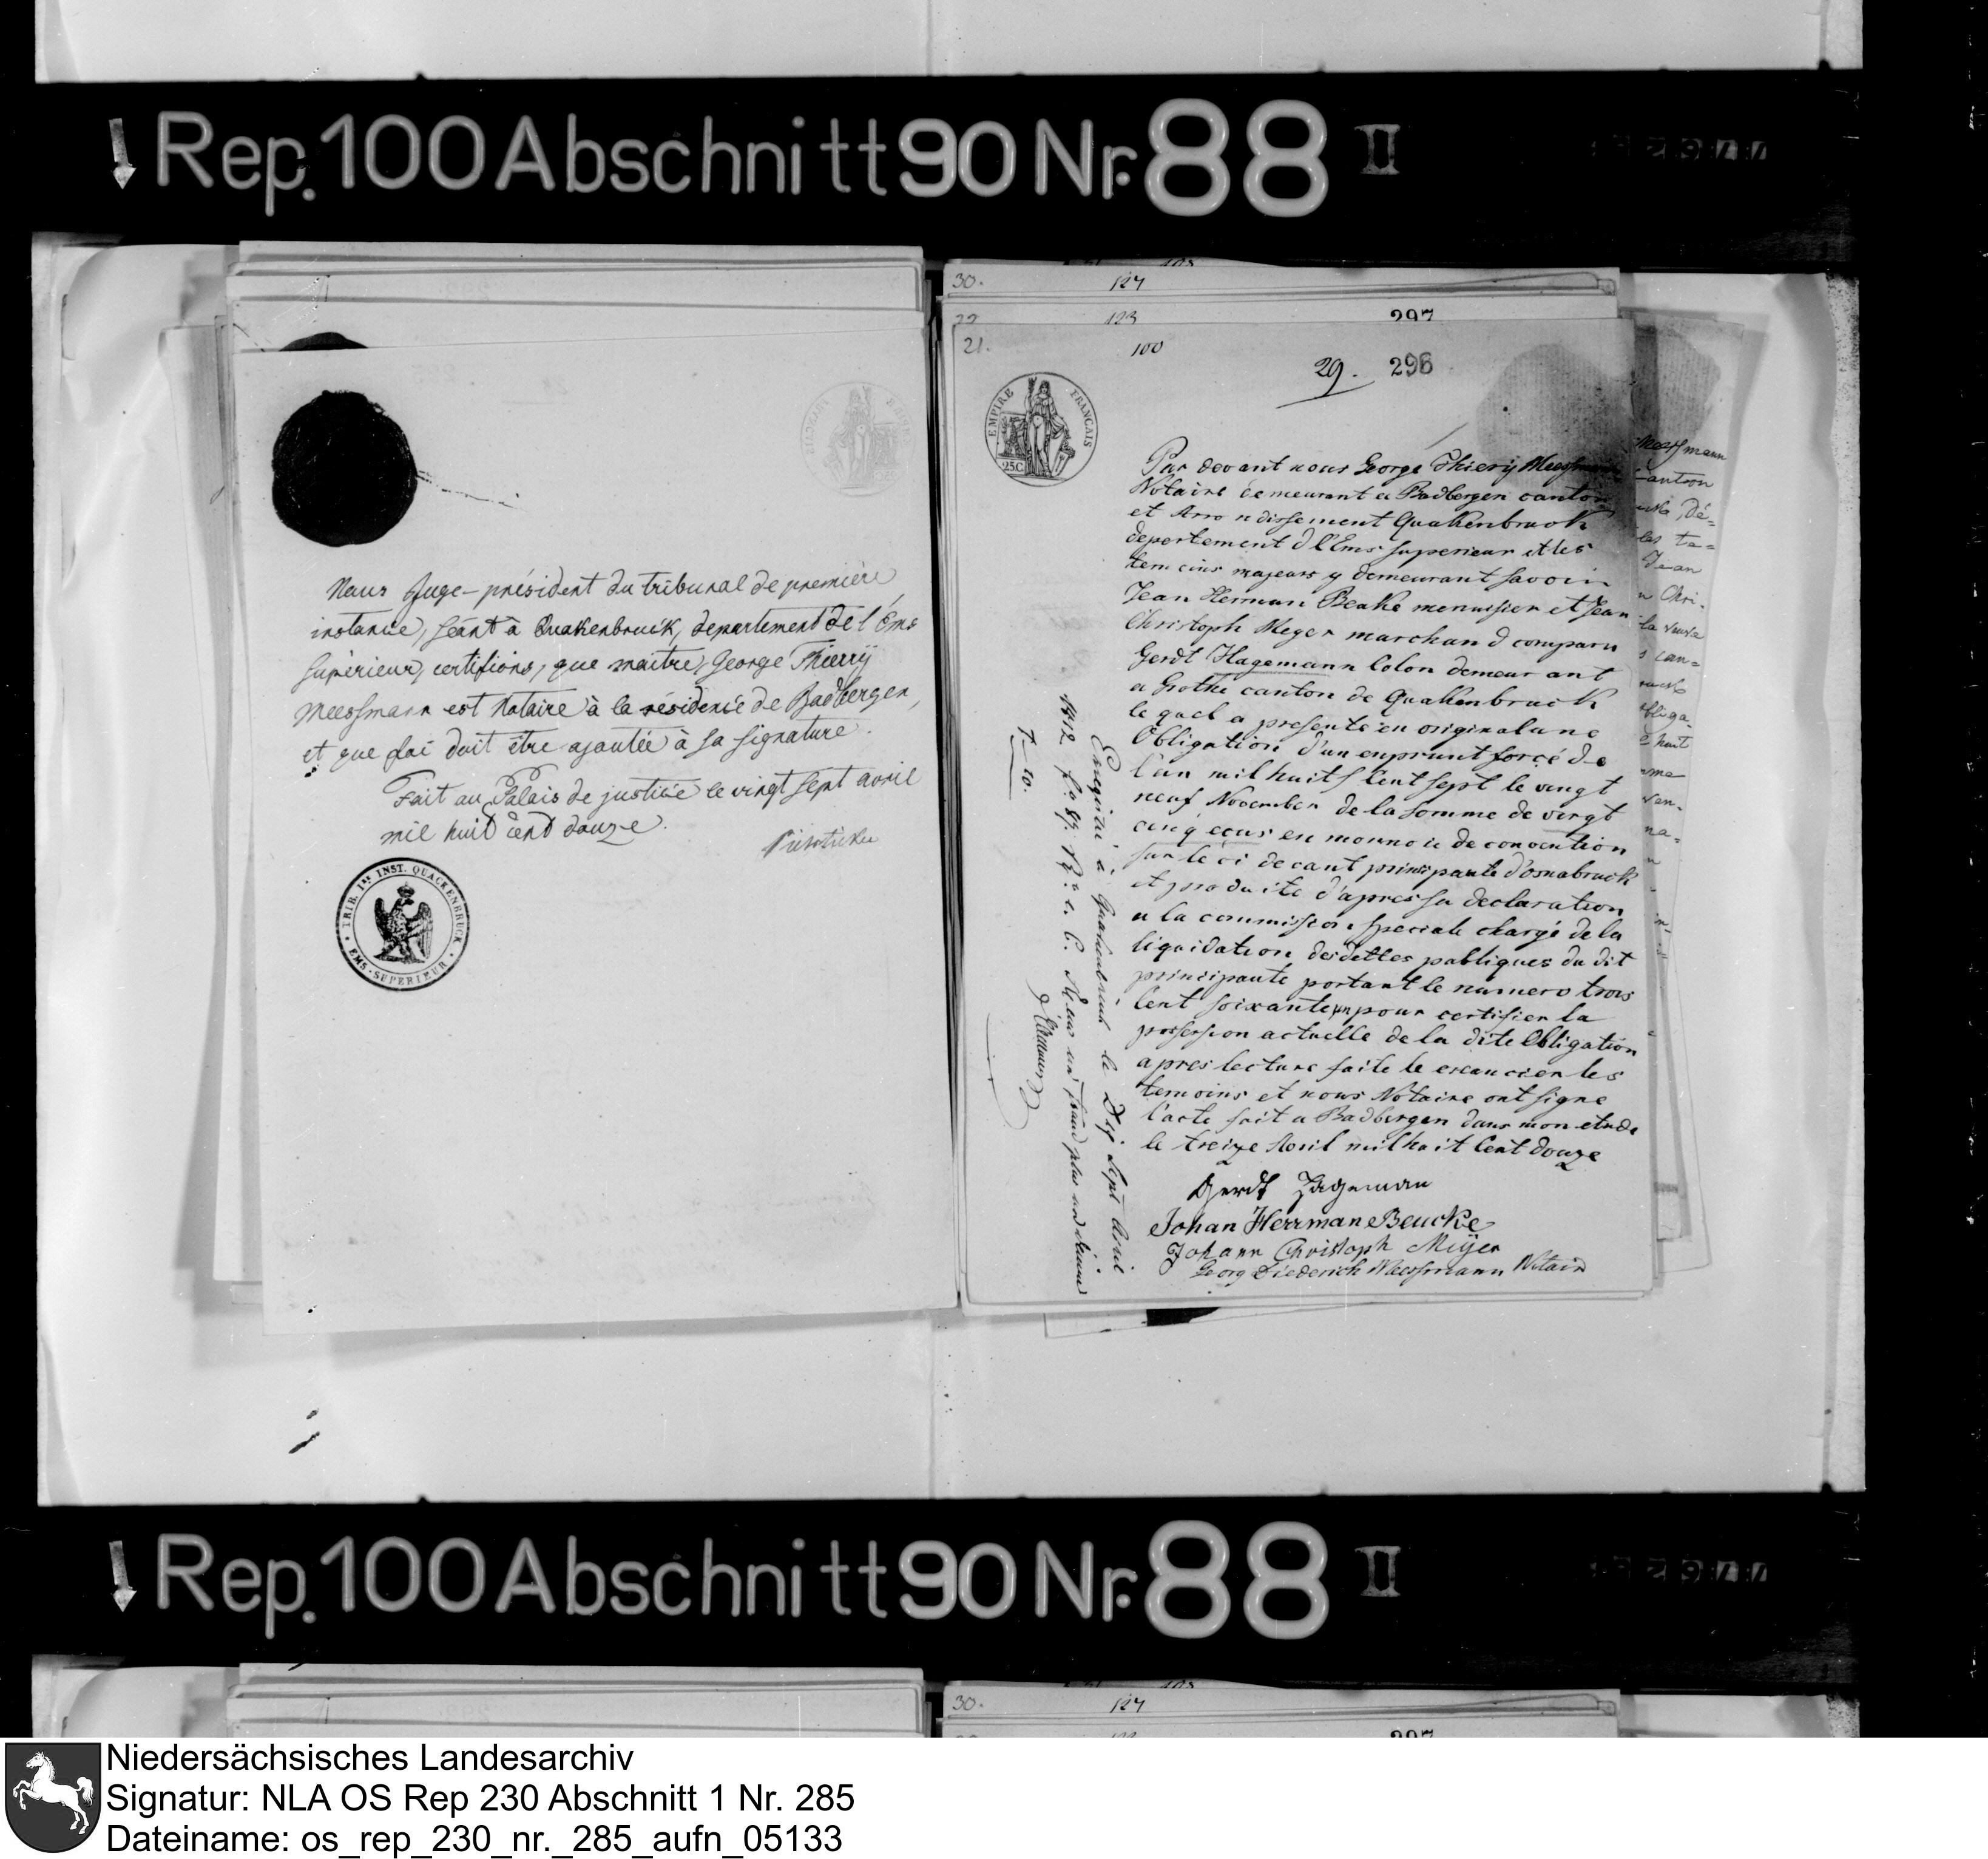 Rep. 100 Abschnitt 90 Nr. 88 II
Nous Juge-président du tribunal de première
instance, séant à Quakenbruck, departement de l'Ems
Supérieur, certifions, que maitre, George Thierrÿ
Meessmann est Notaire à la résidence de Badbergen,
et que foi doit être ajoutée à sa signature.
Fait au Palais de justice le vingt sept avril
mil huit cent douze.
TRIB. 1ER INST. QUACKENBRUCK
EMS-SUPERIEUR
30. 127
22 123 297
21. 100
29. 296
EMPIRE FRANÇAIS
25C
Par devant nous George Thierÿ Meessmann
Notaire demeurant a Badbergen canton
et Arrondissement Quakenbruck
departement d l'Ems superieur et les
temoins majeurs y demeurant savoir
Jean Herman Beake menuisier et Jean
Christoph Meger marchand comparu
Gerdt Hagemann Colon demeurant
a Grothe canton de Quakenbruck
le quel a presenté en original une
Obligation d'un enprunt forcé de
l'an mil huit Cent sept le vingt
neuf November de la somme de vingt
cinq ecus en monnoie de convention
sur le ci devant principauté d'osnabruck
et produite d'apres sa declaration
a la commission speciale chargé de la
liquidation des dettes publiques du dit
principauté portant le numero trois
Cent soixante un pour certifier la
possession actuelle de la dite Obligation
apres lecture faite le creancier les
temoins et nous Notaire ont signe
l'acte fait a Badbergen dans mon etude
le treize Avril mil huit Cent douze
Gerdt Hageman
Johan Herrman Beucke
Johann Christoph Meÿer
Georg Diederich Meessmann Notair
Enregitré à Quakenbruck le Dix Sept Avril
1812 f.o 87. R.o c. 6. Reçu un franc plus un décime
1-10.
Meessmann
Canton
Dé=
les te=
Jean
Chri-
la veuve
can=
obliga-
huit
Rep. 100 Abschnitt 90 Nr. 88 II
30. 127
297
Niedersächsisches Landesarchiv
Signatur: NLA OS Rep 230 Abschnitt 1 Nr. 285
Dateiname: os_rep_230_nr._285_aufn_05133